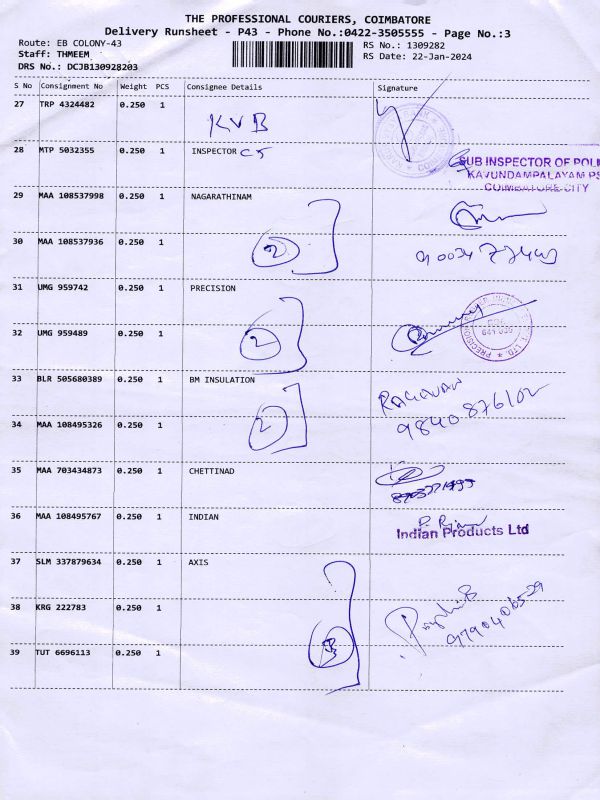 THE PROFESSIONAL COURIERS, COIMBATORE
Delivery Runsheet - P43 - Phone No.:0422-3505555 - Page No.:3
Route: EB COLONY-43
RS No.: 1309282
Staff: THMEEM
RS Date: 22-Jan-2024
DRS No.: DCJB130928203
S No Consignment No Weight PCS Consignee Details Signature
27 TRP 4324482 0.250 1
KVB
28 MTP 5032355 0.250 1 INSPECTOR C5
SUB INSPECTOR OF POLI
KAVUNDAMPALAYAM PS
COIMBATORE CITY
29 MAA 108537998 0.250 1 NAGARATHINAM
30 MAA 108537936 0.250 1
2
31 UMG 959742 0.250 1 PRECISION
32 UMG 959489 0.250 1
2
33 BLR 505680389 0.250 1 BM INSULATION
RAGAVAN
34 MAA 108495326 0.250 1
2
35 MAA 703434873 0.250 1 CHETTINAD
36 MAA 108495767 0.250 1 INDIAN
Indian Products Ltd
37 SLM 337879634 0.250 1 AXIS
38 KRG 222783 0.250 1
39 TUT 6696113 0.250 1
3